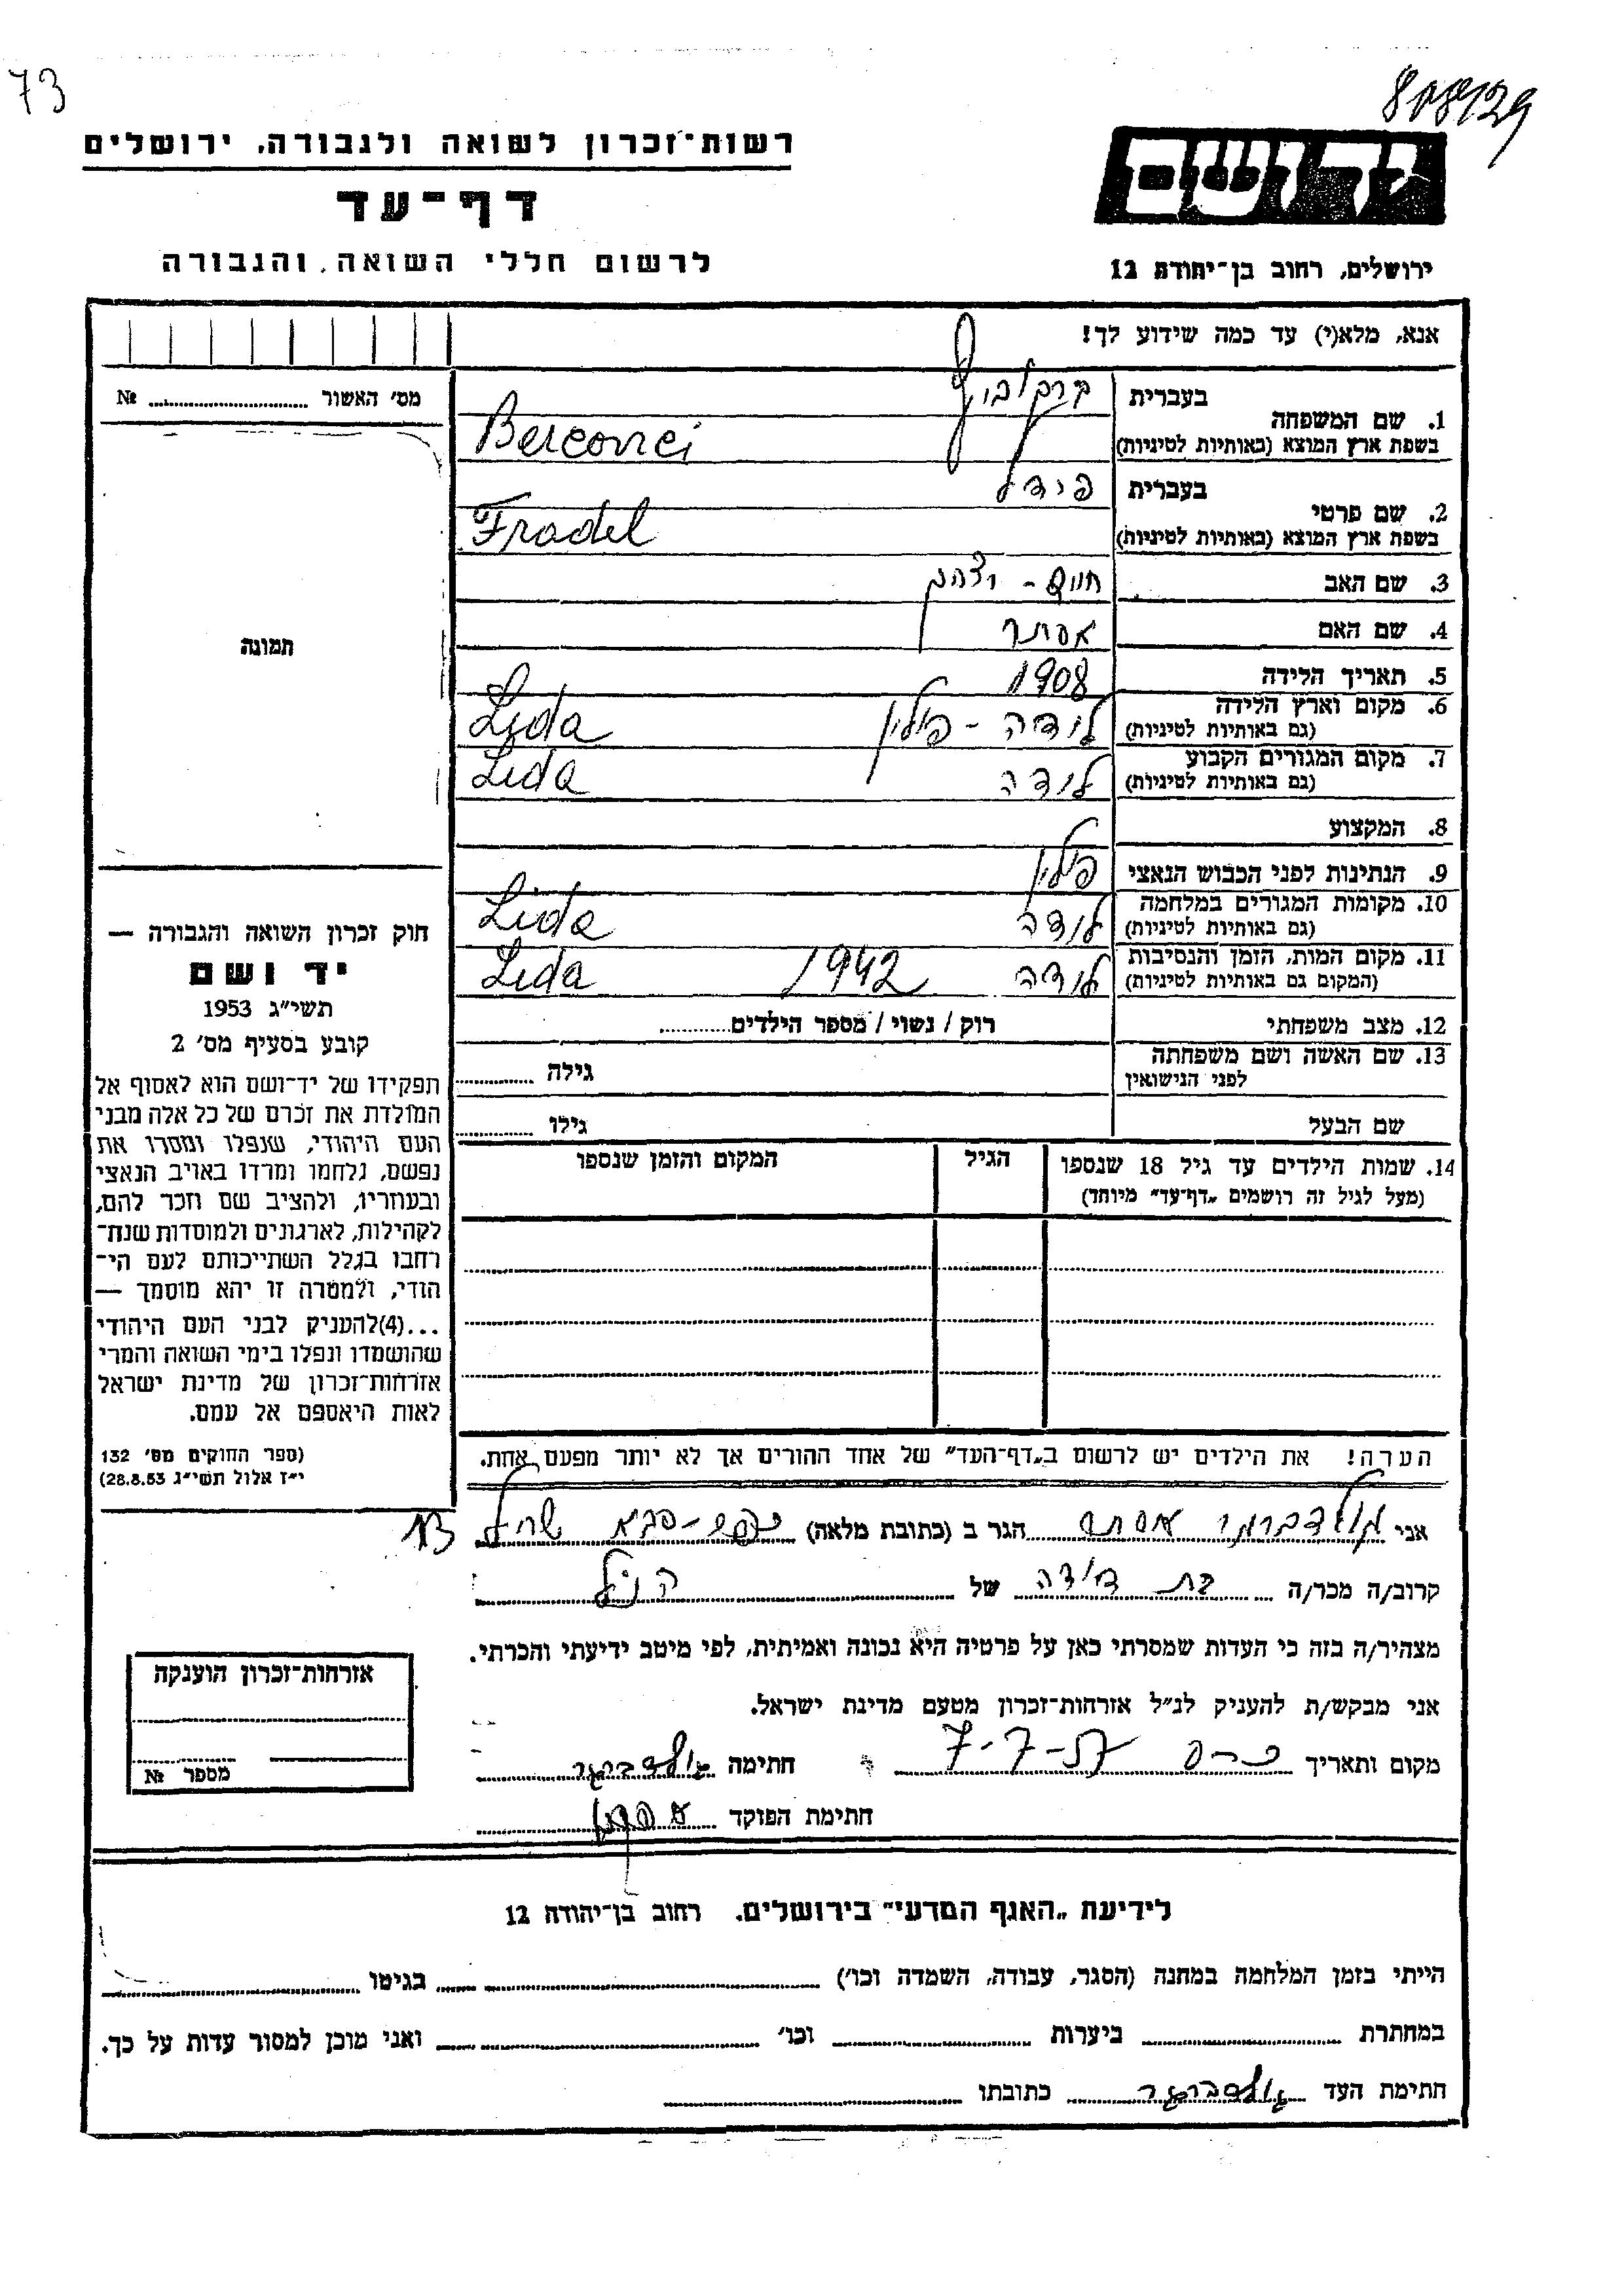 73
808129
רשות־זכרון לשואה ולגבורה, ירושלים
דף־עד
לרשום חללי השואה והגבורה
ידושם
ירושלים, רחוב בן־יהודה 12
אנא, מלא(י) עד כמה שידוע לך!
מס׳ האשור № 
1. שם המשפחה
בעברית
בשפת ארץ המוצא (באותיות לטיניות)
Bercovici
2. שם פרטי
בעברית
פידל
בשפת ארץ המוצא (באותיות לטיניות)
Fradel
3. שם האב חיים - יצחק
4. שם האם אסתר
5. תאריך הלידה 1908
6. מקום וארץ הלידה לידה - פולין Lida
(גם באותיות לטיניות)
7. מקום המגורים הקבוע לידה Lida
(גם באותיות לטיניות)
8. המקצוע
9. הנתינות לפני הכבוש הנאצי פולין
10. מקומות המגורים במלחמה לידה Lida
(גם באותיות לטיניות)
11. מקום המות, הזמן והנסיבות לידה 1942 Lida
(המקום גם באותיות לטיניות)
12. מצב משפחתי רוק / נשוי / מספר הילדים
13. שם האשה ושם משפחתה גילה
לפני הנישואין
שם הבעל גילו
14. שמות הילדים עד גיל 18 שנספו הגיל המקום והזמן שנספו
(מעל לגיל זה רושמים „דף־עד״ מיוחד)
הערה! את הילדים יש לרשום ב„דף־העד״ של אחד ההורים אך לא יותר מפעם אחת.
תמונה
חוק זכרון השואה והגבורה —
יד ושם
תשי״ג 1953
קובע בסעיף מס׳ 2
תפקידו של יד־ושם הוא לאסוף אל
המולדת את זכרם של כל אלה מבני
העם היהודי, שנפלו ומסרו את
נפשם, נלחמו ומרדו באויב הנאצי
ובעוזריו, ולהציב שם וזכר להם,
לקהילות, לארגונים ולמוסדות שנח־
רבו בגלל השתייכותם לעם הי־
הודי, ולמטרה זו יהא מוסמך —
...(4)להעניק לבני העם היהודי
שהושמדו ונפלו בימי השואה והמרי
אזרחות־זכרון של מדינת ישראל
לאות היאספם אל עמם.
(ספר החוקים מס׳ 132
י״ז אלול תשי״ג 28.8.53)
אני אסתר הגר ב (כתובת מלאה) סבא
קרוב/ה מכר/ה בת דודה של הנ״ל
מצהיר/ה בזה כי העדות שמסרתי כאן על פרטיה היא נכונה ואמיתית, לפי מיטב ידיעתי והכרתי.
אני מבקש/ת להעניק לנ״ל אזרחות־זכרון מטעם מדינת ישראל.
מקום ותאריך 7-7-57 חתימה
חתימת הפוקד
אזרחות־זכרון הוענקה
מספר №
לידיעת „האגף המדעי״ בירושלים. רחוב בן־יהודה 12
הייתי בזמן המלחמה במחנה (הסגר, עבודה, השמדה וכו׳) בגיטו
במחתרת ביערות וכו׳ ואני מוכן למסור עדות על כך.
חתימת העד כתובתו